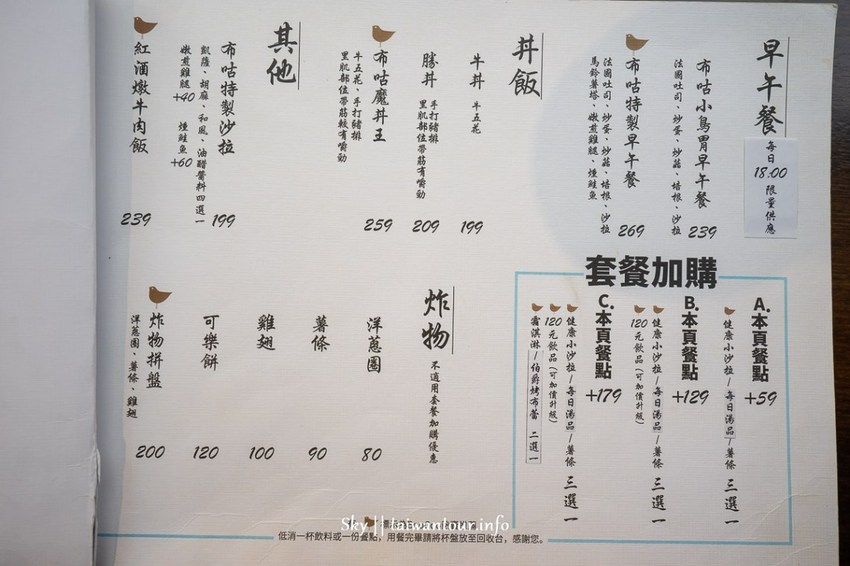 早午餐
每日
18:00
限量供應
布咕小鳥胃早午餐
239
法國吐司、炒蛋、炒菇、培根、沙拉
布咕特製早午餐
269
法國吐司、炒蛋、炒菇、培根、沙拉
馬鈴薯塔、嫩煎雞腿、燻鮭魚
丼飯
牛丼 牛五花
199
勝丼 手打豬排
里肌部位帶筋有嚼勁
209
布咕魔丼王
259
牛五花、手打豬排
里肌部位帶筋較有嚼勁
其他
布咕特製沙拉
199
凱薩、胡麻、和風、油醋醬料四選一
嫩煎雞腿+40 燻鮭魚+60
紅酒燉牛肉飯
239
套餐加購
A.本頁餐點
+59
健康小沙拉/每日湯品/薯條 三選一
B.本頁餐點
+129
健康小沙拉/每日湯品/薯條 三選一
120元飲品(可加價升級)
C.本頁餐點
+179
健康小沙拉/每日湯品/薯條 三選一
120元飲品(可加價升級)
霜淇淋/伯爵烤布蕾 二選一
炸物
不適用套餐加購優惠
洋蔥圈
80
薯條
90
雞翅
100
可樂餅
120
炸物拼盤
200
洋蔥圈、薯條、雞翅
Sky || taiwantour.info
低消一杯飲料或一份餐點，用餐完畢請將杯盤放至回收台，感謝您。